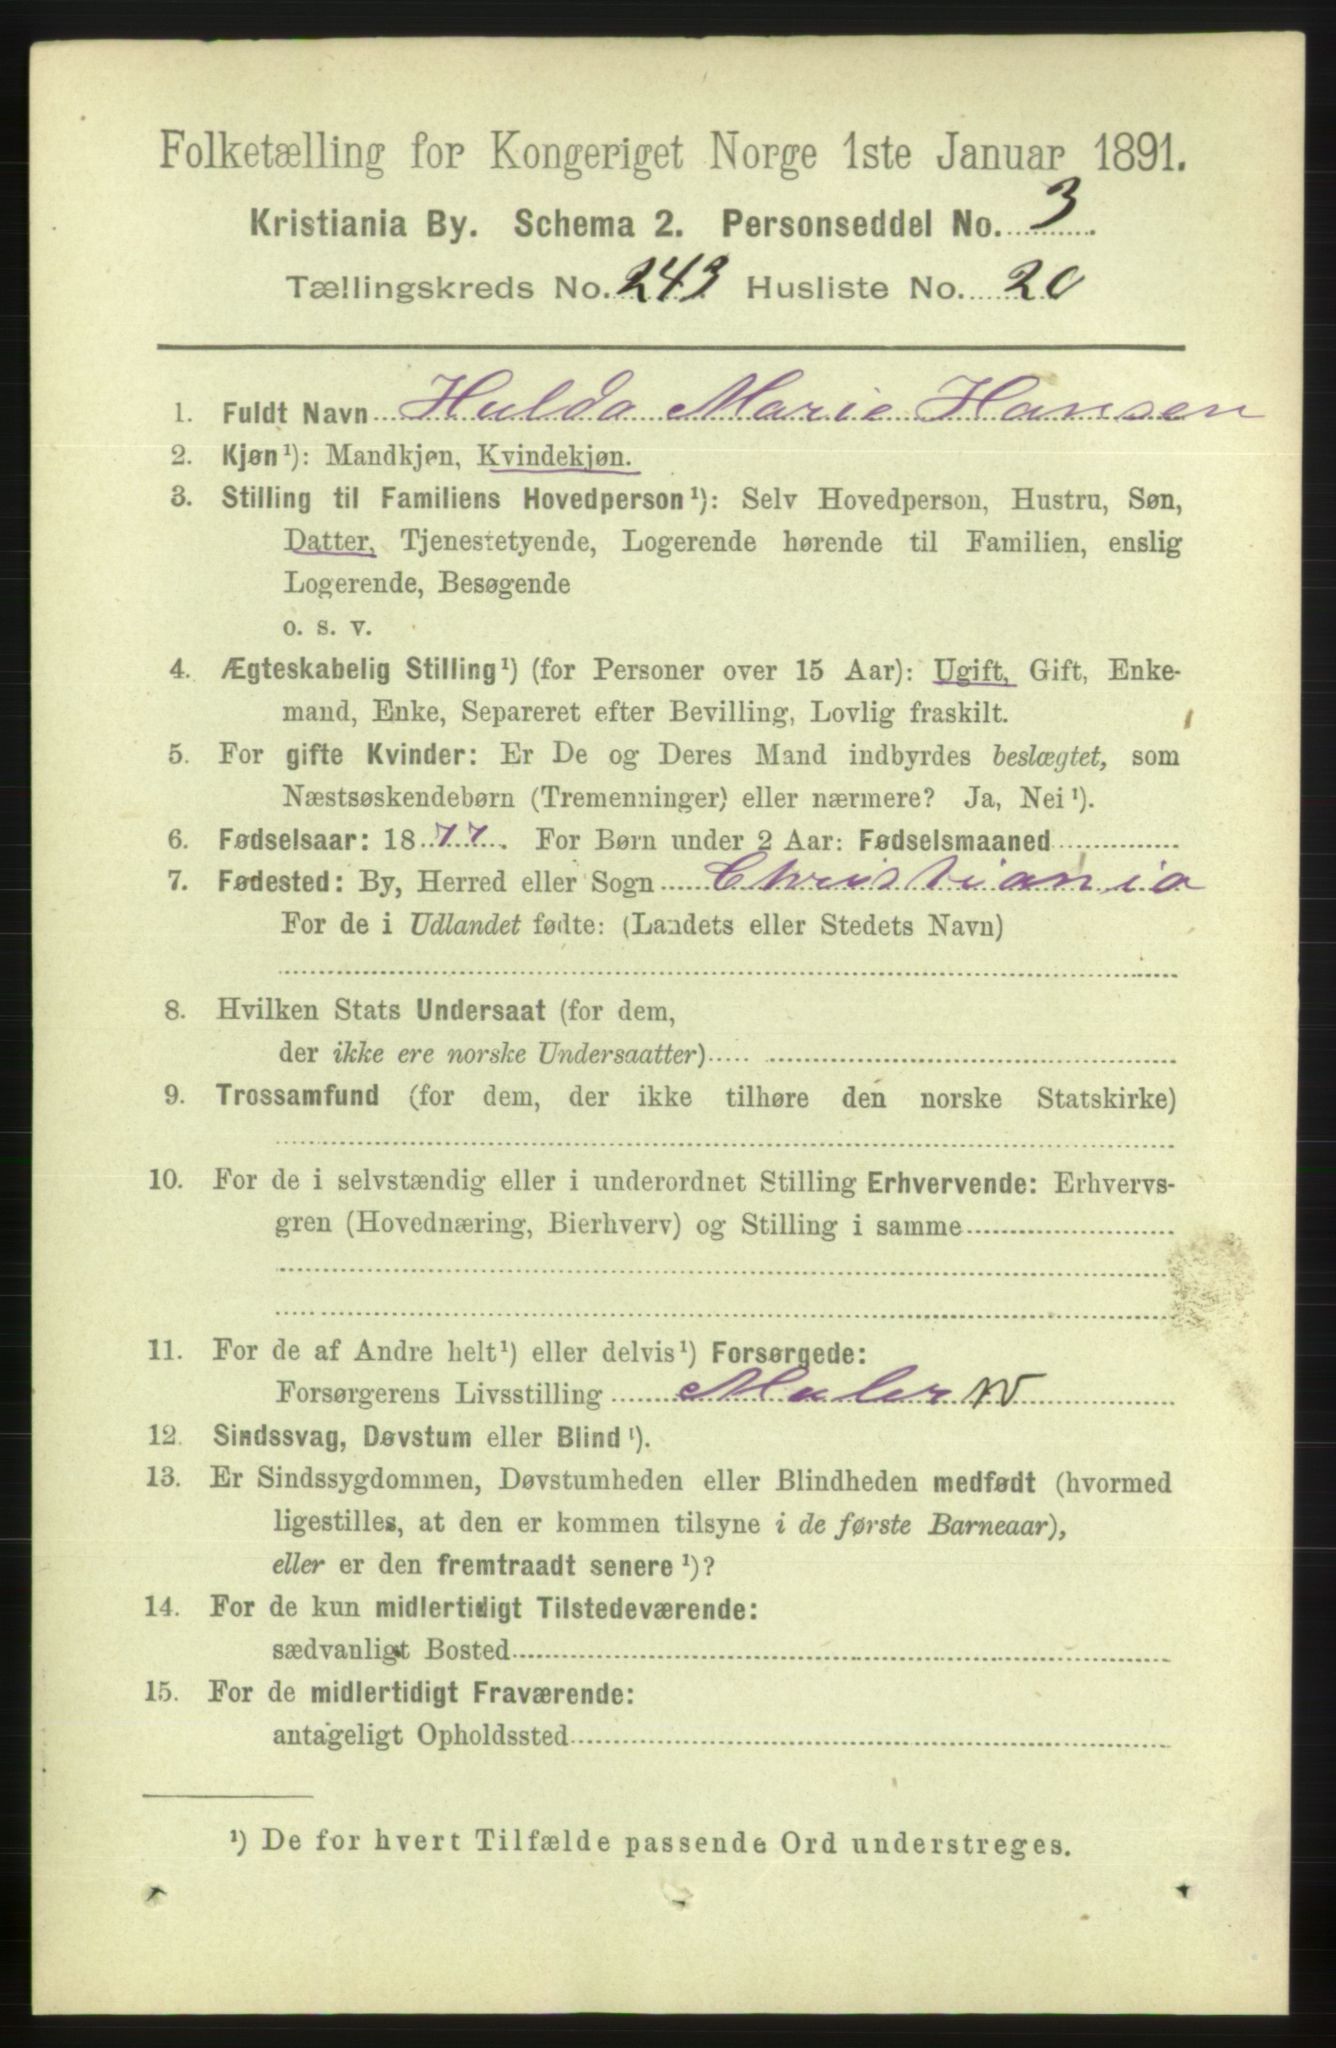 Folketælling for Kongeriget Norge 1ste Januar 1891.
Kristiania By. Schema 2. Personseddel No. 3
Tællingskreds No. 243 Husliste No. 20
1. Fuldt Navn Hulda Marie Hansen
2. Kjøn¹): Mandkjøn, Kvindekjøn.
3. Stilling til Familiens Hovedperson¹): Selv Hovedperson, Hustru, Søn,
Datter, Tjenestetyende, Logerende hørende til Familien, enslig
Logerende, Besøgende
o. s. v.
4. Ægteskabelig Stilling¹) (for Personer over 15 Aar): Ugift, Gift, Enke-
mand, Enke, Separeret efter Bevilling, Lovlig fraskilt.
5. For gifte Kvinder: Er De og Deres Mand indbyrdes beslægtet, som
Næstsøskendebørn (Tremenninger) eller nærmere? Ja, Nei¹).
6. Fødselsaar: 1877. For Børn under 2 Aar: Fødselsmaaned
7. Fødested: By, Herred eller Sogn Christiania
For de i Udlandet fødte: (Landets eller Stedets Navn)
8. Hvilken Stats Undersaat (for dem,
der ikke ere norske Undersaatter)
9. Trossamfund (for dem, der ikke tilhøre den norske Statskirke)
10. For de i selvstændig eller i underordnet Stilling Erhvervende: Erhvervs-
gren (Hovednæring, Bierhverv) og Stilling i samme
11. For de af Andre helt¹) eller delvis¹) Forsørgede:
Forsørgerens Livsstilling Maler
12. Sindssvag, Døvstum eller Blind¹).
13. Er Sindssygdommen, Døvstumheden eller Blindheden medfødt (hvormed
ligestilles, at den er kommen tilsyne i de første Barneaar),
eller er den fremtraadt senere¹)?
14. For de kun midlertidigt Tilstedeværende:
sædvanligt Bosted
15. For de midlertidigt Fraværende:
antageligt Opholdssted
¹) De for hvert Tilfælde passende Ord understreges.